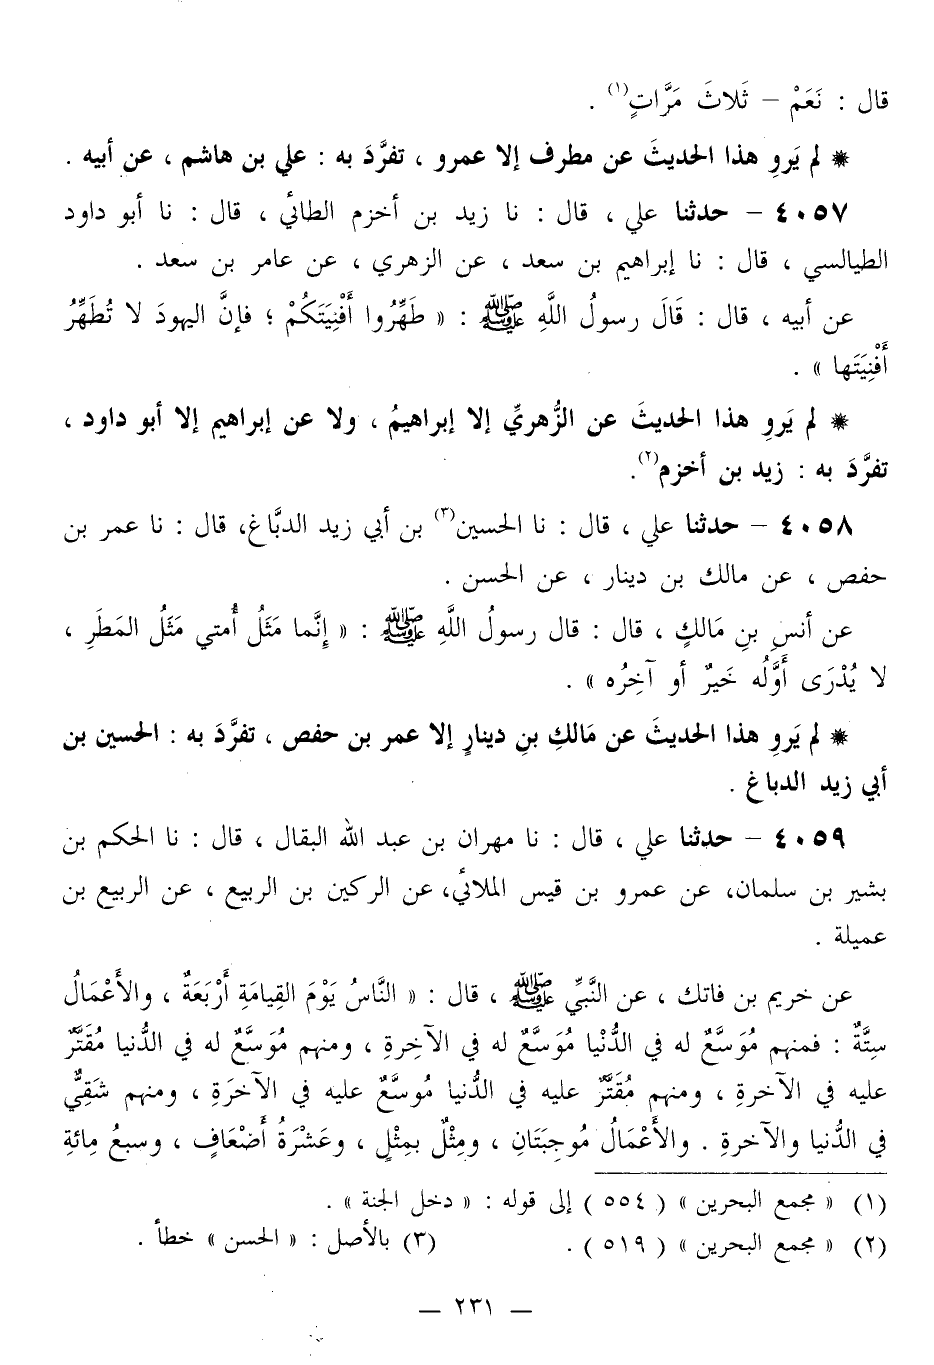 قال : نَعَمْ – ثَلاثَ مَرَّاتٍ(١) .
* لم يَروِ هذا الحديثَ عن مطرف إلا عمرو ، تفرَّدَ به : علي بن هاشم ، عن أبيه .
٤٠٥٧ – حدثنا علي ، قال : نا زيد بن أخزم الطائي ، قال : نا أبو داود
الطيالسي ، قال : نا إبراهيم بن سعد ، عن الزهري ، عن عامر بن سعد .
عن أبيه ، قال : قَالَ رسولُ اللَّهِ ﷺ : « طَهِّرُوا أَفْنِيَتَكُمْ ؛ فإنَّ اليهودَ لا تُطَهِّرُ
أَفْنِيَتَها » .
* لم يَروِ هذا الحديثَ عن الزُّهريِّ إلا إبراهيمُ ، ولا عن إبراهيم إلا أبو داود ،
تفرَّدَ به : زيد بن أخزم(٢).
٤٠٥٨ – حدثنا علي ، قال : نا الحسين(٣) بن أبي زيد الدبَّاغ، قال : نا عمر بن
حفص ، عن مالك بن دينار ، عن الحسن .
عن أنسِ بنِ مَالكٍ ، قال : قال رسولُ اللَّهِ ﷺ : « إِنَّما مَثَلُ أُمتي مَثَلُ المَطَرِ ،
لا يُدْرَى أَوَّلُه خَيرٌ أو آخِرُه » .
* لم يَروِ هذا الحديثَ عن مَالكِ بنِ دينارٍ إلا عمر بن حفص ، تفرَّدَ به : الحسين بن
أبي زيد الدباغ .
٤٠٥٩ – حدثنا علي ، قال : نا مهران بن عبد الله البقال ، قال : نا الحكم بن
بشير بن سلمان، عن عمرو بن قيس الملائي، عن الركين بن الربيع ، عن الربيع بن
عميلة .
عن خريم بن فاتك ، عن النَّبيِّ ﷺ ، قال : « النَّاسُ يَوْمَ القِيامَةِ أَرْبَعَةٌ ، والأَعْمَالُ
سِتَّةٌ : فمنهم مُوَسَّعٌ له في الدُّنْيا مُوَسَّعٌ له في الآخِرةِ ، ومنهم مُوَسَّعٌ له في الدُّنيا مُقَتَّرٌ
عليه في الآخرةِ ، ومنهم مُقَتَّرٌ عليه في الدُّنيا مُوسَّعٌ عليه في الآخرَةِ ، ومنهم شَقِيٌّ
في الدُّنيا والآخرةِ . والأَعْمَالُ مُوجِبَتَانِ ، ومِثْلٌ بمِثْلٍ ، وعَشْرَةُ أَضْعَافٍ ، وسبعُ مِائةِ
(١) « مجمع البحرين » ( ٥٥٤ ) إلى قوله : « دخل الجنة » .
(٢) « مجمع البحرين » ( ٥١٩ ) . (٣) بالأصل : « الحسن » خطأ .
– ٢٣١ –